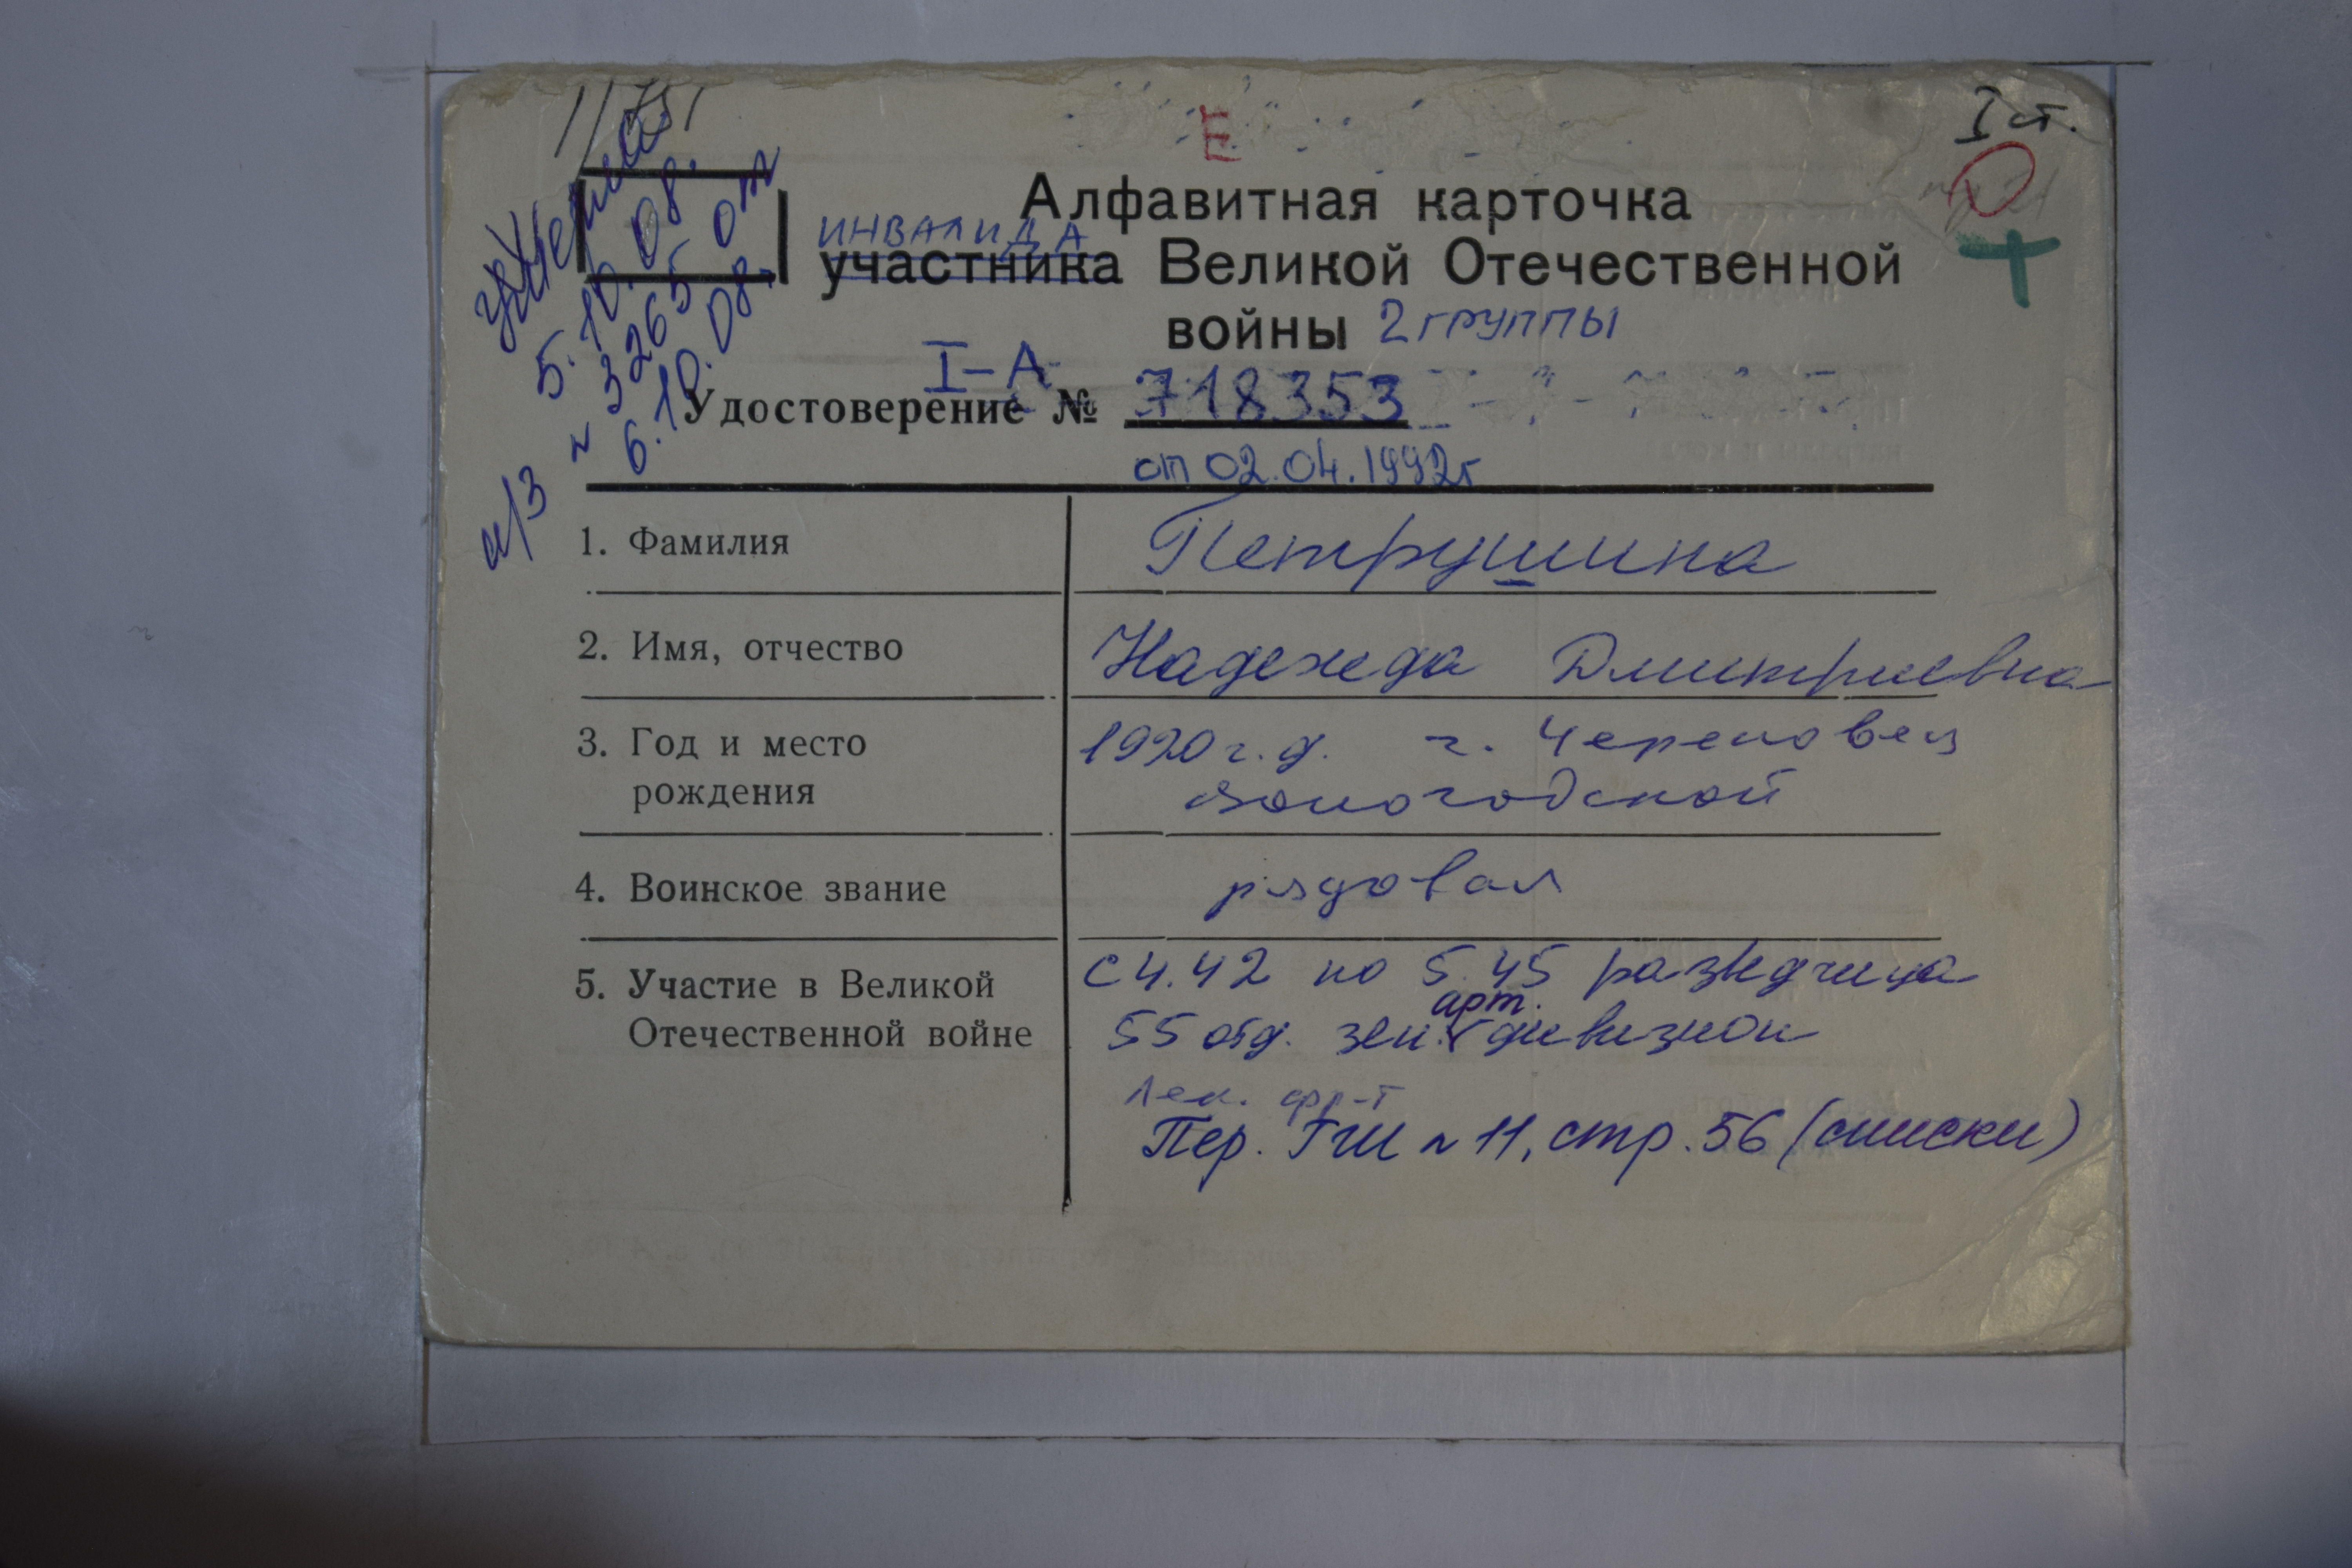 11751
Е
I ст.
умерла
5.10.08.
а/з № 3265 от
6.10.08.
Алфавитная карточка
ИНВАЛИДА
участника Великой Отечественной
войны 2 группы
I-А
Удостоверение № 718353
от 02.04.1992г
1. Фамилия Петрушина
2. Имя, отчество Надежда Дмитриевна
3. Год и место г. Череповец
рождения Вологодской
4. Воинское звание рядовая
5. Участие в Великой с 4.42 по 5.45 разведчица
арт.
Отечественной войне 55 отд. зен. дивизион
Лен. фр-т
Пер. ГШ № 11, стр. 56 (списки)